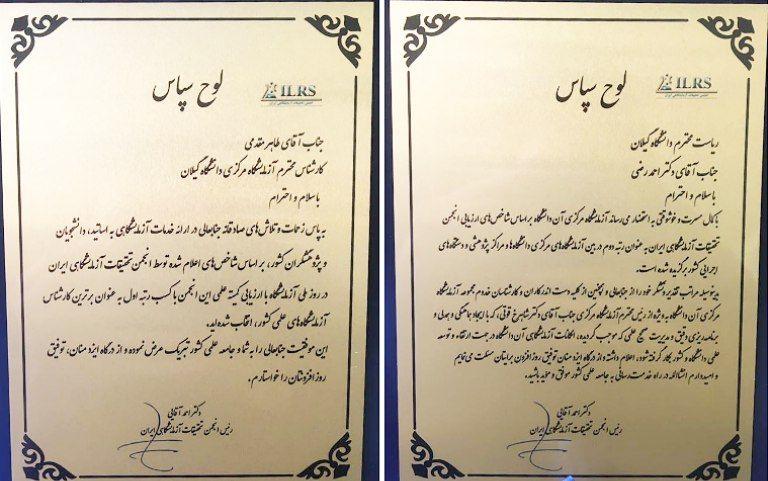 لوح سپاس
ILRS
انجمن تحقیقات آزمایشگاهی ایران
جناب آقای طاهر مقدمی
کارشناس محترم آزمایشگاه مرکزی دانشگاه گیلان
باسلام و احترام
به پاس زحمات و تلاش‌های صادقانه جنابعالی در ارائه خدمات آزمایشگاهی به اساتید، دانشجویان
و پژوهشگران کشور، بر اساس شاخص‌های اعلام شده توسط انجمن تحقیقات آزمایشگاهی ایران
در روز ملی آزمایشگاه با ارزیابی کمیته علمی این انجمن با کسب رتبه اول به عنوان برترین کارشناس
آزمایشگاه‌های علمی کشور انتخاب شده‌اید.
این موفقیت جنابعالی را به شما و جامعه علمی کشور تبریک عرض نموده و از درگاه ایزد منان، توفیق
روز افزونتان را خواستارم.
دکتر احمد آقایی
رئیس انجمن تحقیقات آزمایشگاهی ایران
لوح سپاس
ILRS
انجمن تحقیقات آزمایشگاهی ایران
ریاست محترم دانشگاه گیلان
جناب آقای دکتر احمد رضی
باسلام و احترام
با کمال مسرت و خوشوقتی به استحضار می‌رساند آزمایشگاه مرکزی آن دانشگاه بر اساس شاخص‌های ارزیابی انجمن
تحقیقات آزمایشگاهی ایران به عنوان رتبه دوم در بین آزمایشگاه‌های مرکزی دانشگاه‌ها و مراکز پژوهشی و دستگاه‌های
اجرایی کشور برگزیده شده است.
بدینوسیله مراتب تقدیر و تشکر خود را از جنابعالی و همچنین از کلیه دست اندرکاران و کارشناسان خدوم مجموعه آزمایشگاه
مرکزی آن دانشگاه به ویژه از رئیس محترم آزمایشگاه مرکزی جناب آقای دکتر شاهرخ قوتی، که با ایجاد هماهنگی و همدلی و
برنامه‌ریزی دقیق و مدیریت صحیح علمی که موجب گردیده، امکانات آزمایشگاهی آن دانشگاه در جهت ارتقاء و توسعه
علمی دانشگاه و کشور بکار گرفته شود، اعلام داشته و از درگاه ایزد منان توفیق روز افزون برایتان مسئلت می‌نمایم
و امیدوارم انشاالله در راه خدمت رسانی به جامعه علمی کشور موفق و مؤید باشید.
دکتر احمد آقایی
رئیس انجمن تحقیقات آزمایشگاهی ایران